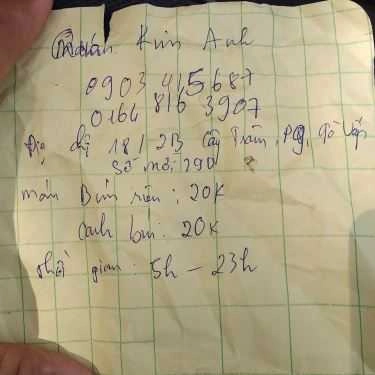 Kim Anh
0903 415 687
0164 816 3907
Địa chỉ 18/2B Cây Trâm, P9, Gò Vấp
Số mới 290
món Bún riêu : 20K
Canh bún : 20K
thời gian : 5h - 23h